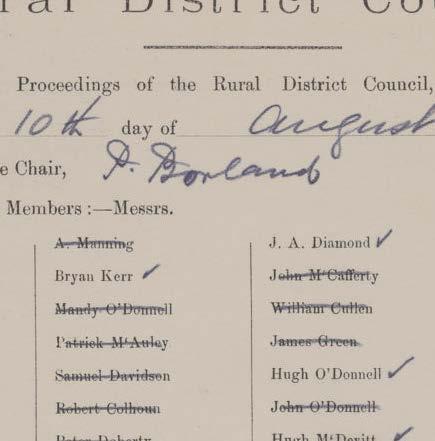 ral District Cou
Proceedings of the Rural District Council,
10th day of August
e Chair, P. Borland
Members :—Messrs.
A. Manning
Bryan Kerr ✓
Mandy O'Donnell
Patrick McAuley
Samuel Davidson
Robert Colhoun
Peter Doherty
J. A. Diamond ✓
John McCafferty
William Cullen
James Green
Hugh O'Donnell ✓
John O'Donnell
Hugh McDevitt ✓